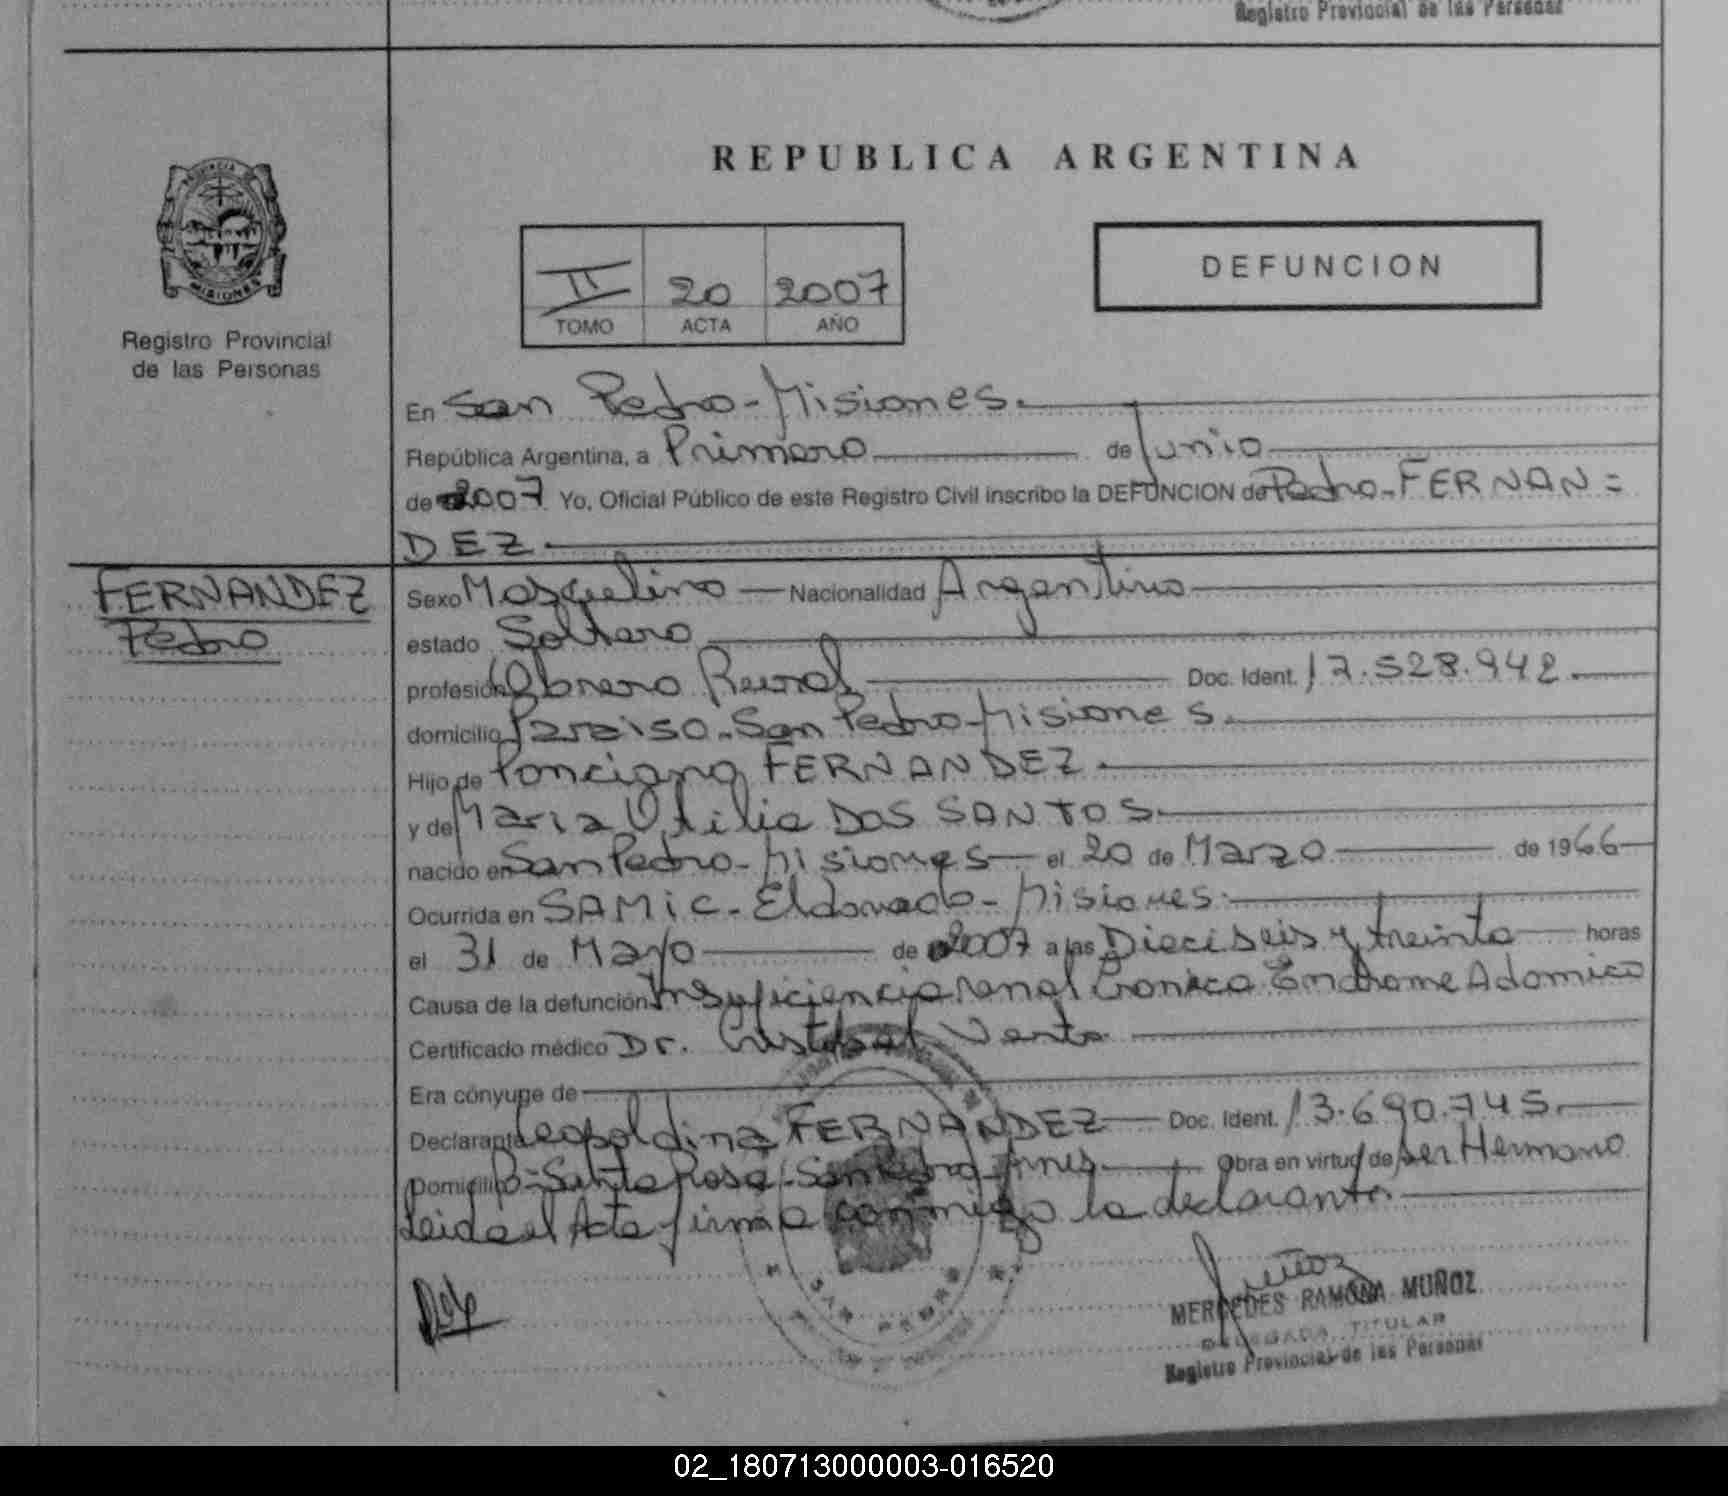 Registro Provincial de las Personas
REPUBLICA ARGENTINA
PROVINCIA DE
MISIONES
Registro Provincial
de las Personas
II 20 2007
TOMO ACTA AÑO
DEFUNCION
En San Pedro - Misiones.
República Argentina, a Primero de Junio
de 2007 Yo, Oficial Público de este Registro Civil inscribo la DEFUNCION de Pedro - FERNAN=
DEZ.
FERNANDEZ
Pedro
Sexo Masculino Nacionalidad Argentino
estado Soltero
profesión Obrero Rural Doc. Ident. 17.528.942.
domicilio Paraiso - San Pedro - Misiones.
Hijo de Ponciano FERNANDEZ.
y de Maria Otilia DOS SANTOS.
nacido en San Pedro - Misiones el 20 de Marzo de 1966
Ocurrida en SAMiC - Eldorado - Misiones.
el 31 de Mayo de 2007 a las Dieciseis y treinta horas
Causa de la defunción Insuficiencia renal Cronica Sindrome Adomico
Certificado médico Dr. Cristobal Vento
Era cónyuge de
Declarante Leopoldina FERNANDEZ Doc. Ident. 13.690.745.
Domicilio Bº Santa Rosa - San Pedro - Mnes. Obra en virtud de ser Hermano
Leida el Acta firma conmigo la declarante.
SAN PEDRO
Muñoz
MERCEDES RAMONA MUÑOZ
DELEGADA TITULAR
Registro Provincial de las Personas
02_180713000003-016520